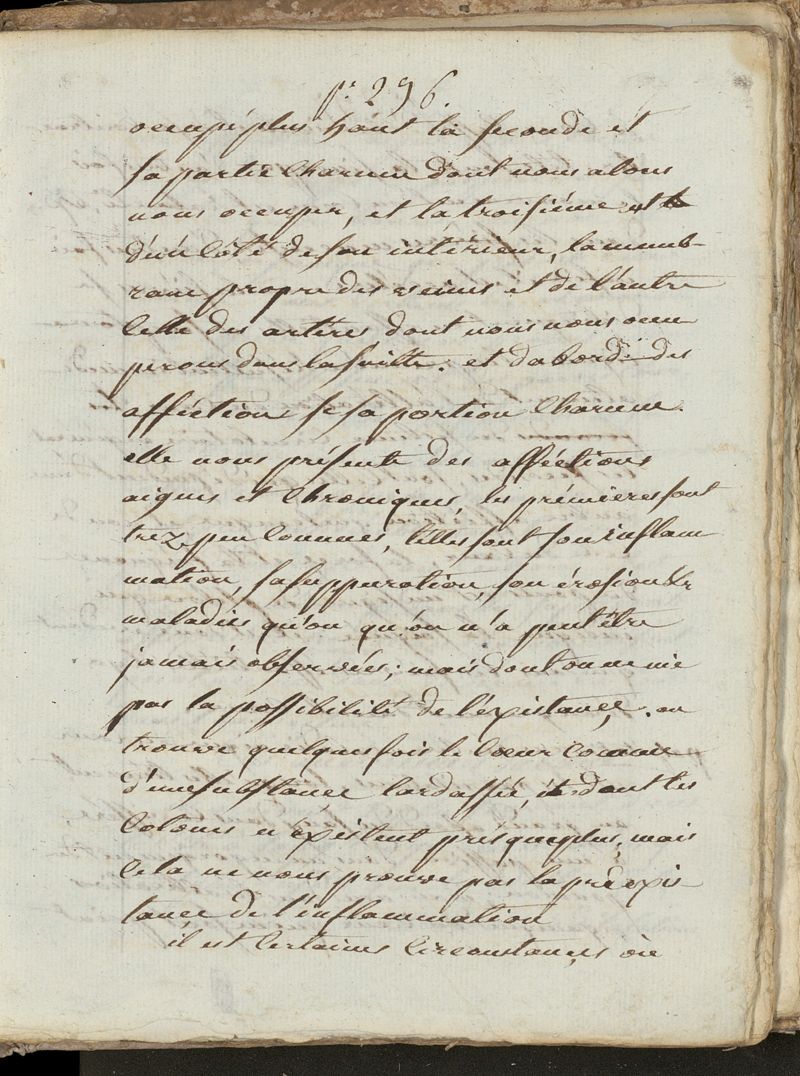 pe 296.
occupé plus haut la seconde est
sa partie charnue dont nous alons
nous occuper, et la troisiéme est
d'un côté de son intérieur, la memb-
rane propre des veines et de l'autre
celle des artères dont nous nous occu
perons dans la suitte. et d'abord des
affection de sa portion charnue.
elle nous présente des afféctions
aigues et chroniques, les prémieres sont
trez peu connues, telles sont son inflam
mation, sa suppuration, son érosion &c
maladies qu'on qu'on n'a peut être
jamais observées; mais dont on ne nie
pas la possibilité de l'éxistance. on
trouve quelques fois le coeur comme
d'une substance lardassée, et dont les
colones n'éxistent présque plus, mais
cela ne nous prouve pas la prééxis
tance de l'inflammation
il est certaines circonstances où